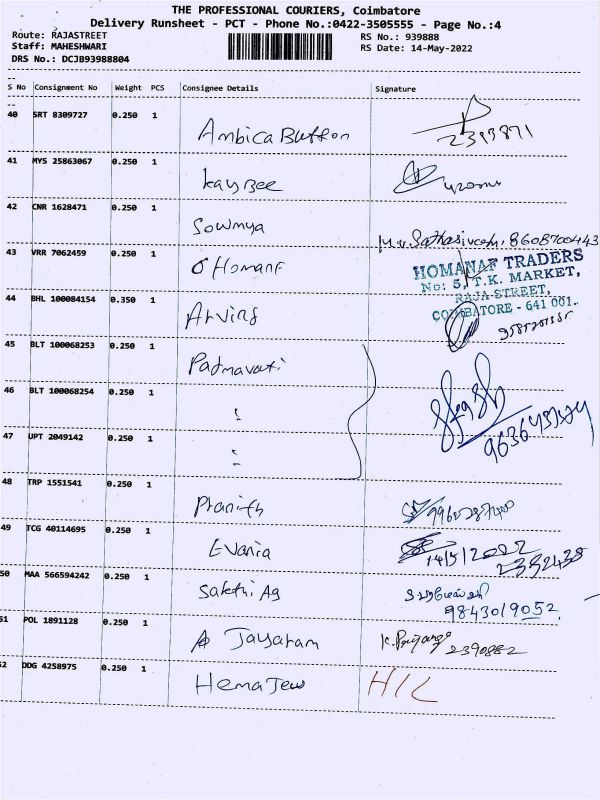 THE PROFESSIONAL COURIERS, Coimbatore
Delivery Runsheet - PCT - Phone No.:0422-3505555 - Page No.:4
Route: RAJASTREET
RS No.: 939888
Staff: MAHESHWARI
RS Date: 14-May-2022
DRS No.: DCJB93988804
S No Consignment No Weight PCS Consignee Details Signature
40 SRT 8309727 0.250 1
Ambica Button 2393871
41 MYS 25863067 0.250 1
Kaybee
42 CNR 1628471 0.250 1
Sowmya 8608700443
43 VRR 7062459 0.250 1
HOMANAF TRADERS
No: 5, T.K. MARKET,
RAJA-STREET,
COIMBATORE - 641 001.
44 BHL 100084154 0.350 1
Arvind
45 BLT 100068253 0.250 1
Padmavati
46 BLT 100068254 0.250 1
47 UPT 2049142 0.250 1
48 TRP 1551541 0.250 1
Pranith
49 TCG 40114695 0.250 1
Evania 14/5/2022
50 MAA 566594242 0.250 1
Sakthi Ag
9843019052
51 POL 1891128 0.250 1
Jayaram 2390882
52 DDG 4258975 0.250 1
Hema Jew H/C